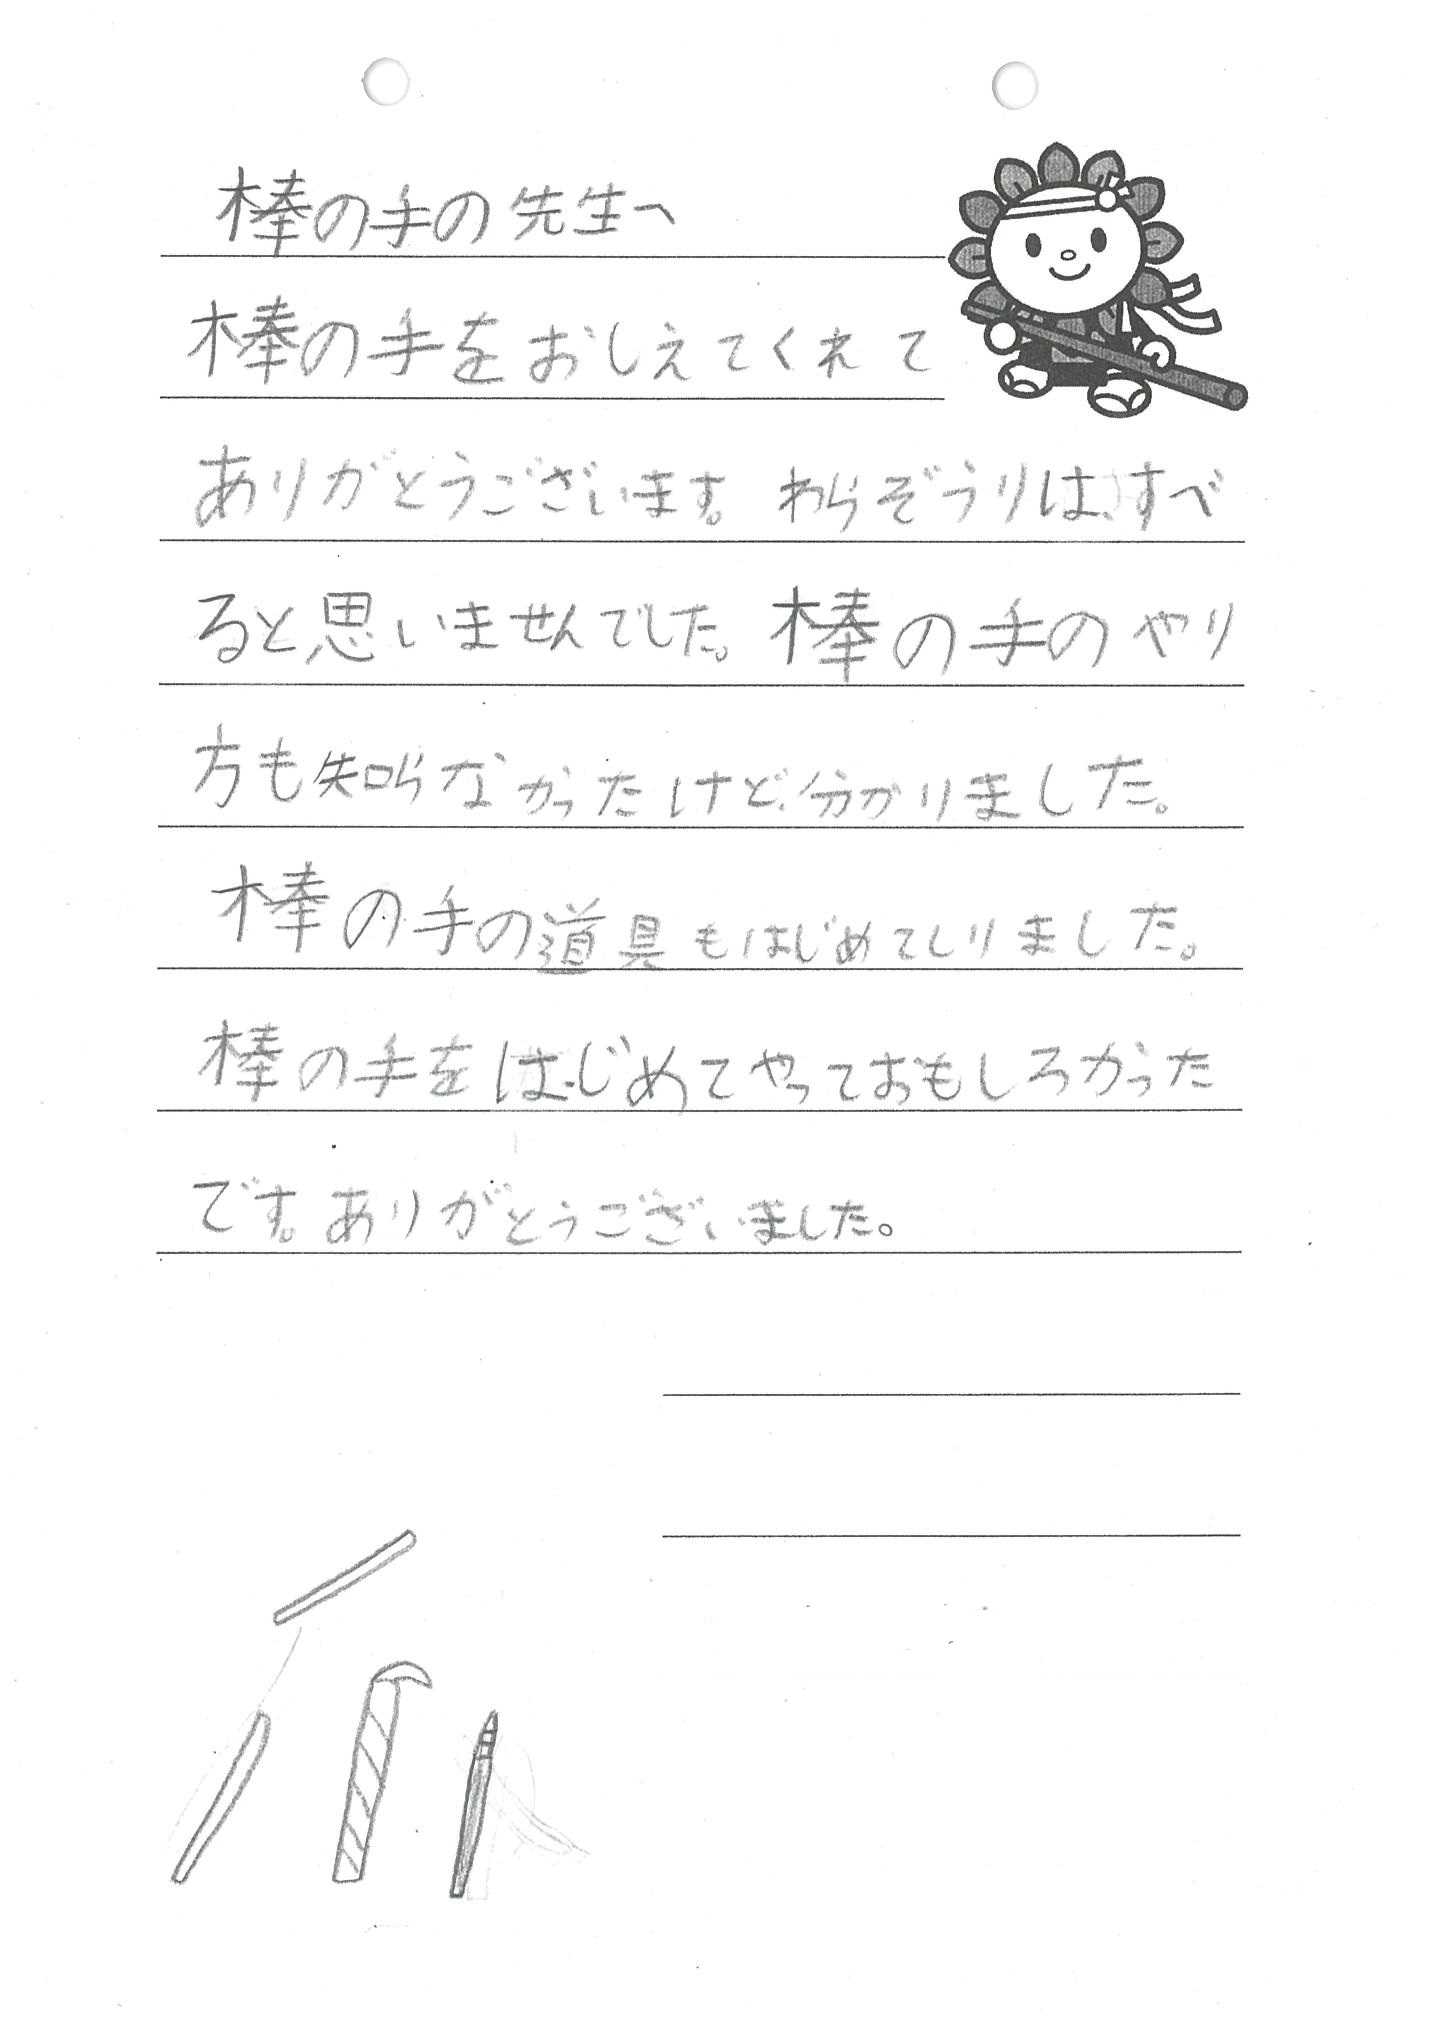 棒の手の先生へ
棒の手をおしえてくれて
ありがとうございます。わらぞうりは、すべ
ると思いませんでした。棒の手のやり
方も知らなかったけど、分かりました。
棒の手の道具もはじめてしりました。
棒の手をはじめてやっておもしろかった
です。ありがとうございました。